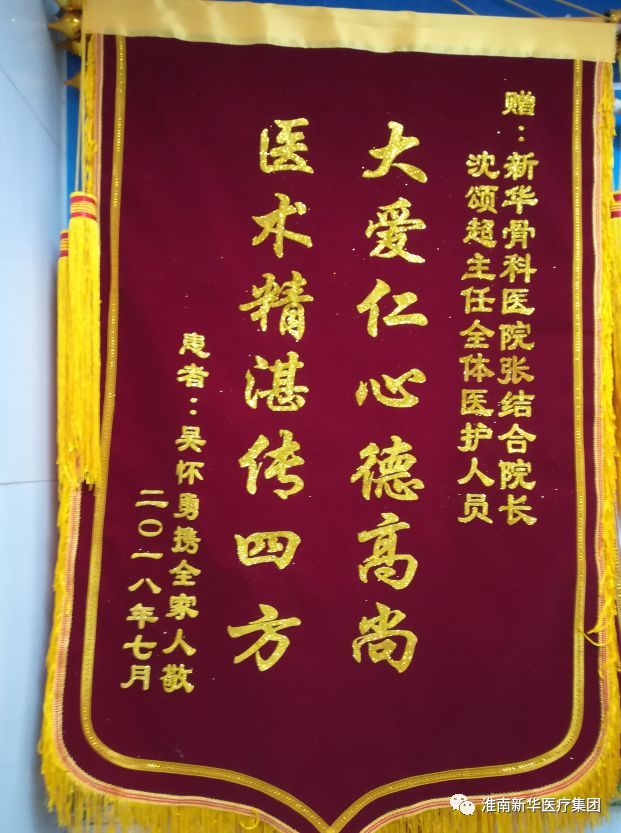 赠：新华骨科医院张结合院长
沈颂超主任全体医护人员
大爱仁心德高尚
医术精湛传四方
患者：吴怀勇携全家人敬
二〇一八年七月
淮南新华医疗集团